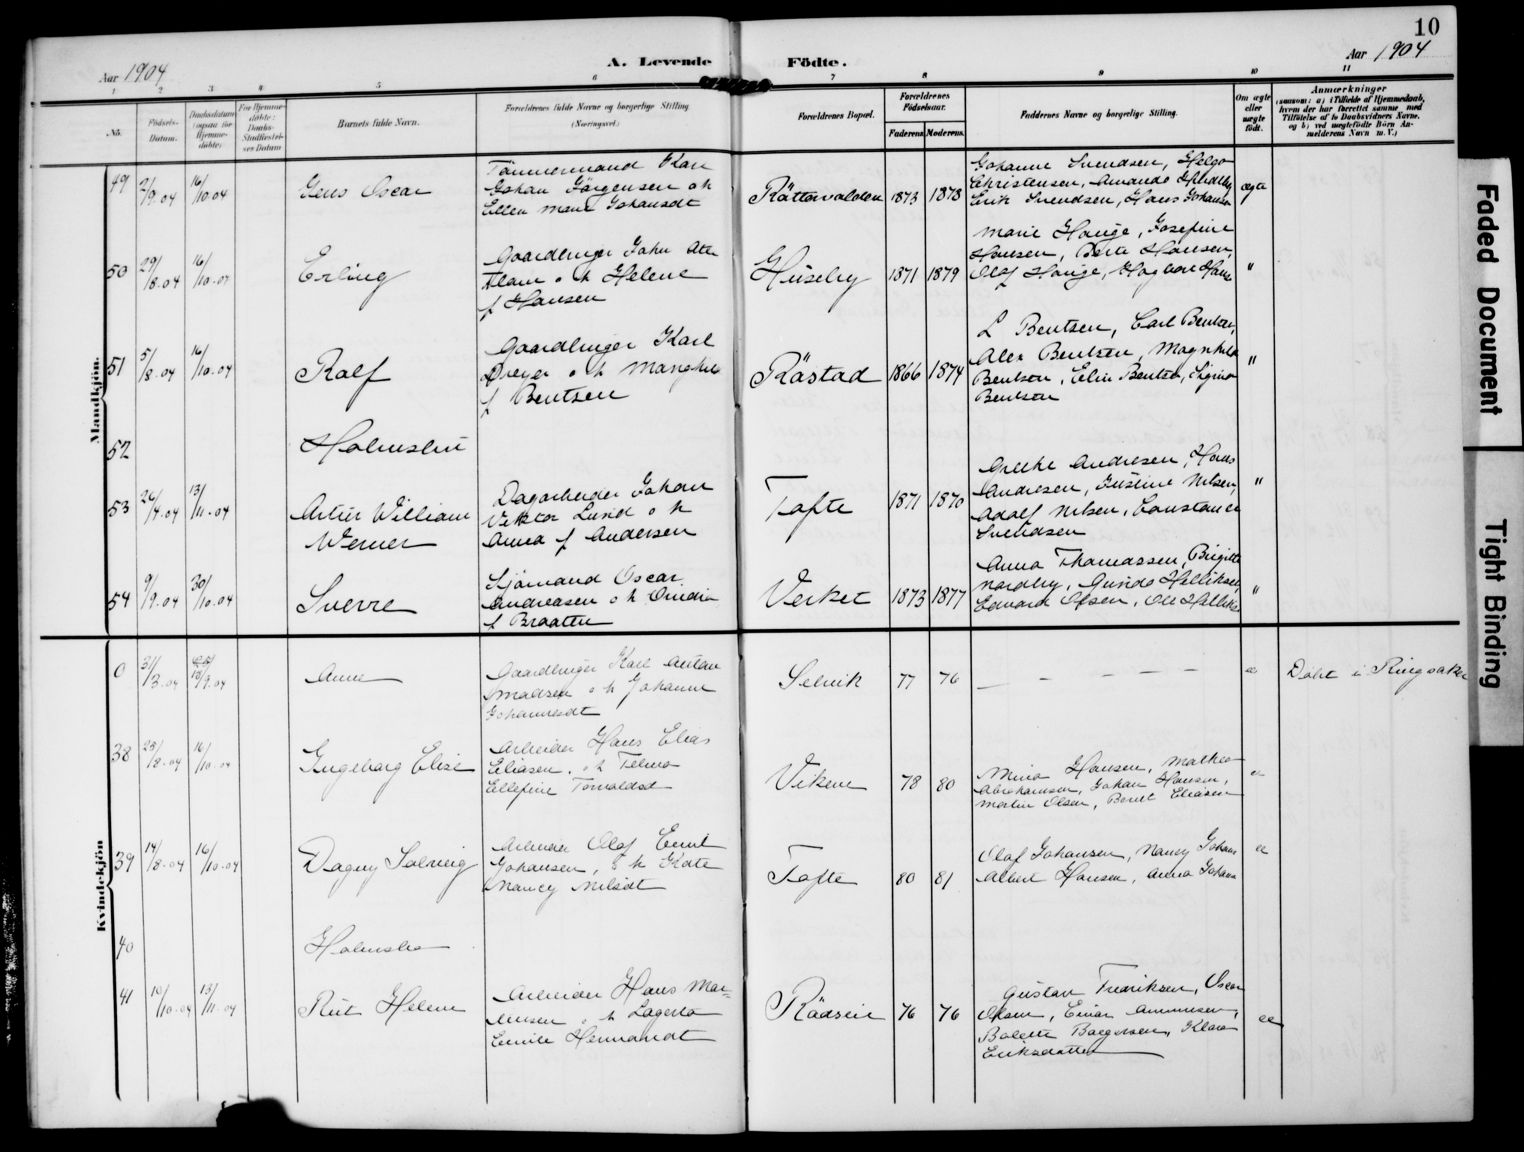 10
Aar 1904
A. Levende Födte.
Aar 1904
1 2 3 4 5 6 7 8 9 10 11
No.
Födsels-Datum.
Daabsdatum (ogsaa för Hjemme-döbte)
For Hjemme-döbte: Daabs-Stadfæstel-ses Datum
Barnets fulde Navn.
Forældrenes fulde Navne og borgerlige Stilling (Næringsvei.)
Forældrenes Bopæl.
Forældrenes Födselsaar.
Faderens Moderens.
Faddernes Navne og borgerlige Stilling.
Om ægte eller uægte födt.
Anmærkninger
(saasom: a) i Tilfælde af Hjemmedaab, hvem der har forrettet samme med Tilföielse af to Daabsvidners Navne, og b) ved uægtefödte Börn An-melderens Navn m. V.)
Mandkjön.
49 2/9.04 16/10.04 Jens Oscar
Tömmermand Karl
Johan Jörgensen o h
Ellen Marie Johansdt
Råttavalden 1873 1878
Johanne Svendsen, Helga
Christensen, Amanda
Erik Svendsen, Hans Johansen
ægte
50 29/8.04 16/10.04 Erling
Gaardbruger John
o h Helene
f Hansen
Huseby 1871 1879
Marie Hauge, Josefine
Hansen, Berte Hansen,
Olaf Hauge, Hagbart Hans
"
51 5/8.04 16/10.04 Ralf
Gaardbruger Karl
Dreyer o h Manghild
f Bentsen
Råstad 1866 1874
L Bentsen, Carl Bentsen,
Alex Bentsen, Magnhild
Bentsen, Elin Bentse, Signe
Bentsen
"
52 Holmsbu
53 26/4.04 13/11.04 Artur William
Werner
Dagarbeider Johan
Viktor Lund o h
Anna f Andersen
Tofte 1871 1870
Grethe Andresen, Hans
Andresen, Justine Nilsen,
Adolf Nilsen, Constance
Svendsen
"
54 9/9.04 30/10.04 Sverre
Sjömand Oscar
Andreasen o h Ovidia
f Braaten
Verket 1873 1877
Anna Thomassen, Birgitte
Nordby, Gunda Helliksen,
Edvard Olsen, Ole Helliks
"
Kvindekjön
0 31/3.04 18/9.04 Anne
Gaardbruger Karl Anton
Madsen o h Johanne
Johannesdt
Selvik 77 76
— — — — —
"
Döbt i Ringsaker
38 28/8.04 16/10.04 Ingeborg Elise
Arbeider Hans Elias
Eliasen, o h Telma
Ellefine Torvaldsd
Viken 78 80
Mina Hansen, Mathea
Abrahamsen, Johan Hansen,
Martin Olsen, Bernt Eliasen
"
39 14/8.04 16/10.04 Dagny Solveig
Arbeider Olaf Emil
Johansen, o h Kate
Nancy Nilsdt
Tofte 80 81
Olaf Johansen, Nancy Johans
Albert Hansen, Anna Johans
"
40 Holmsbu
41 10/10.04 13/11.04 Rut Helene
Arbeider Hans Mar-
tinsen o h Lagerta
Emilie Hermandt
Rödsei 76 76
Gustav Fredriksen, Oscar
Olsen, Einar Amundsen,
Bolette Borgersen, Klara
Eriksdatter
"
Faded Document
Tight Binding